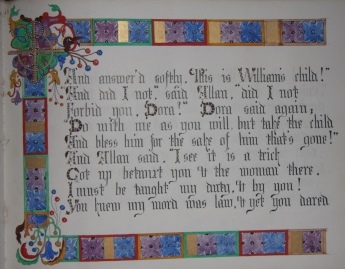 And answer'd softly, "This is William's child!"
"And did I not," said Allan, "did I not
Forbid you, Dora!" Dora said again;
"Do with me as you will, but take the child
And bless him for the sake of him that's gone!"
And Allan said, "I see it is a trick
Got up betwixt you & the woman there.
I must be taught my duty, & by you!
You knew my word was law, & yet you dared